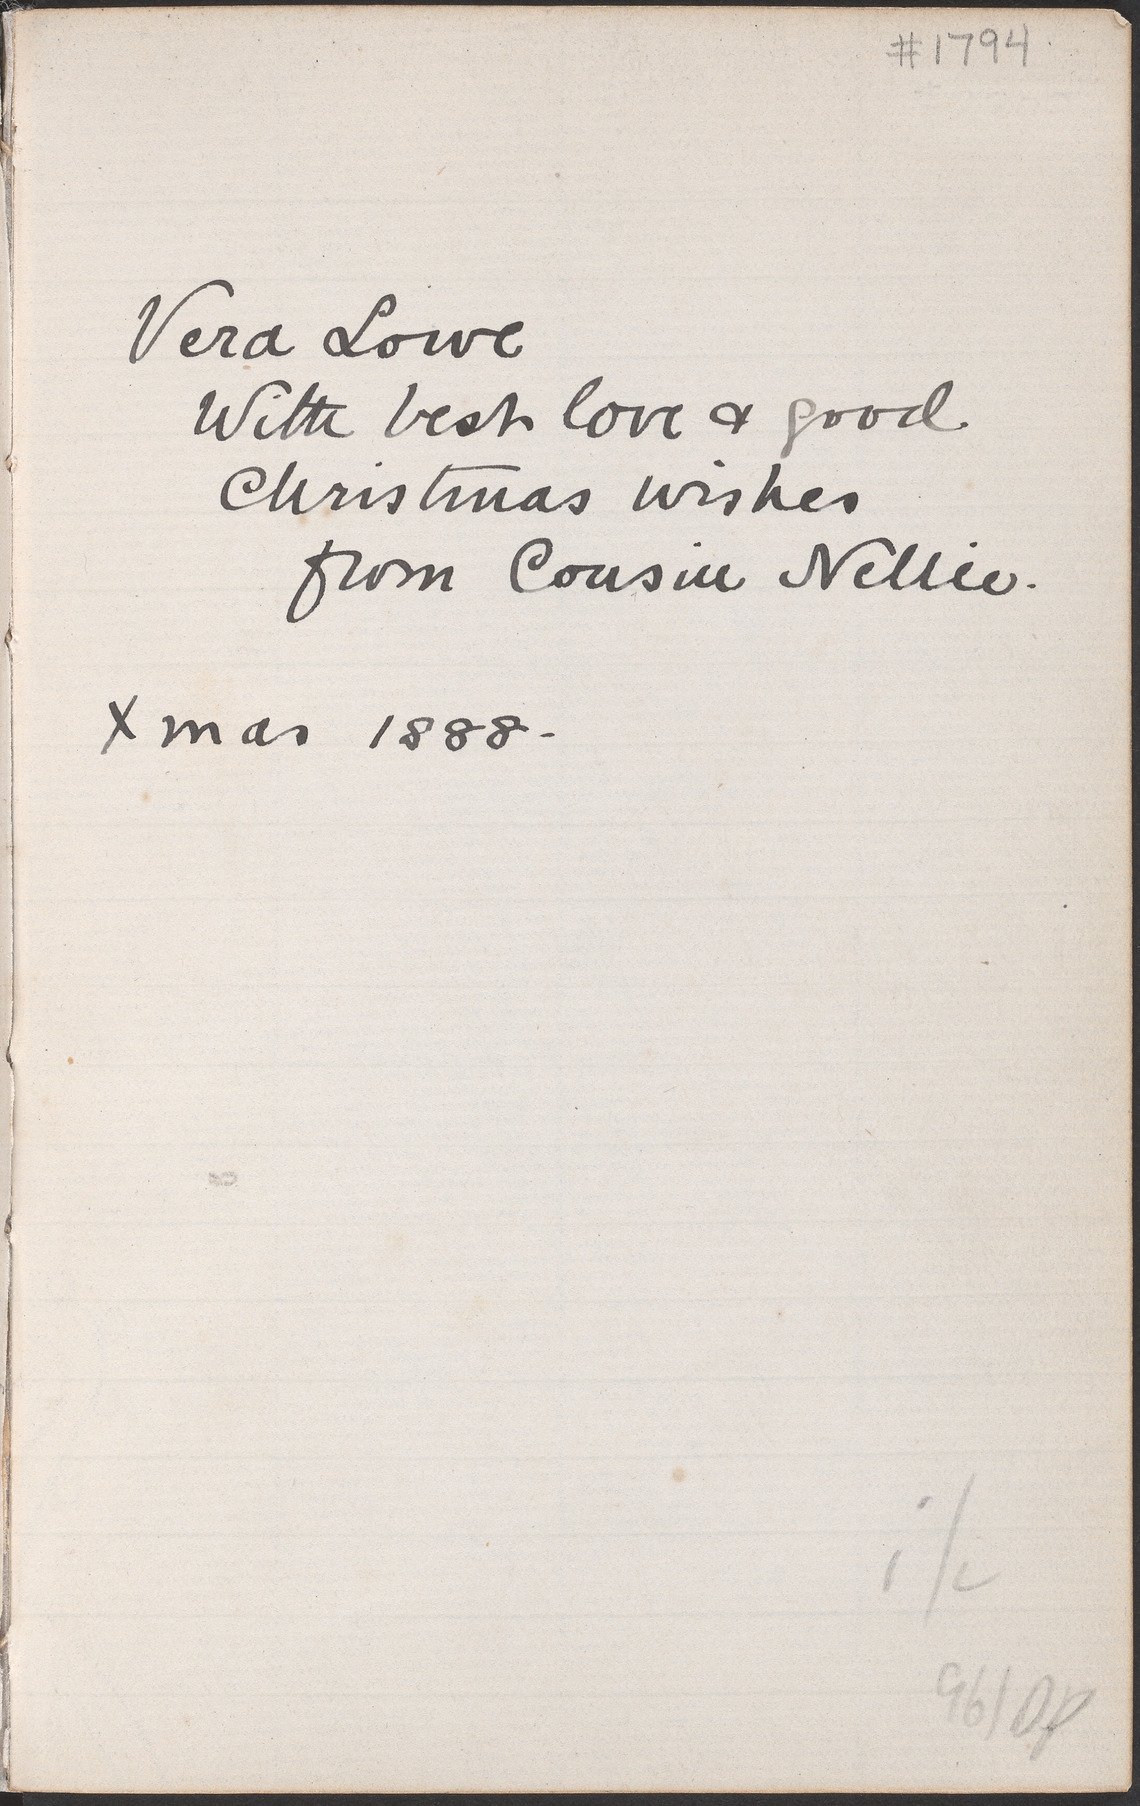 #1794
Vera Lowe
With best love & good
Christmas wishes
from Cousin Nellie.
Xmas 1888-